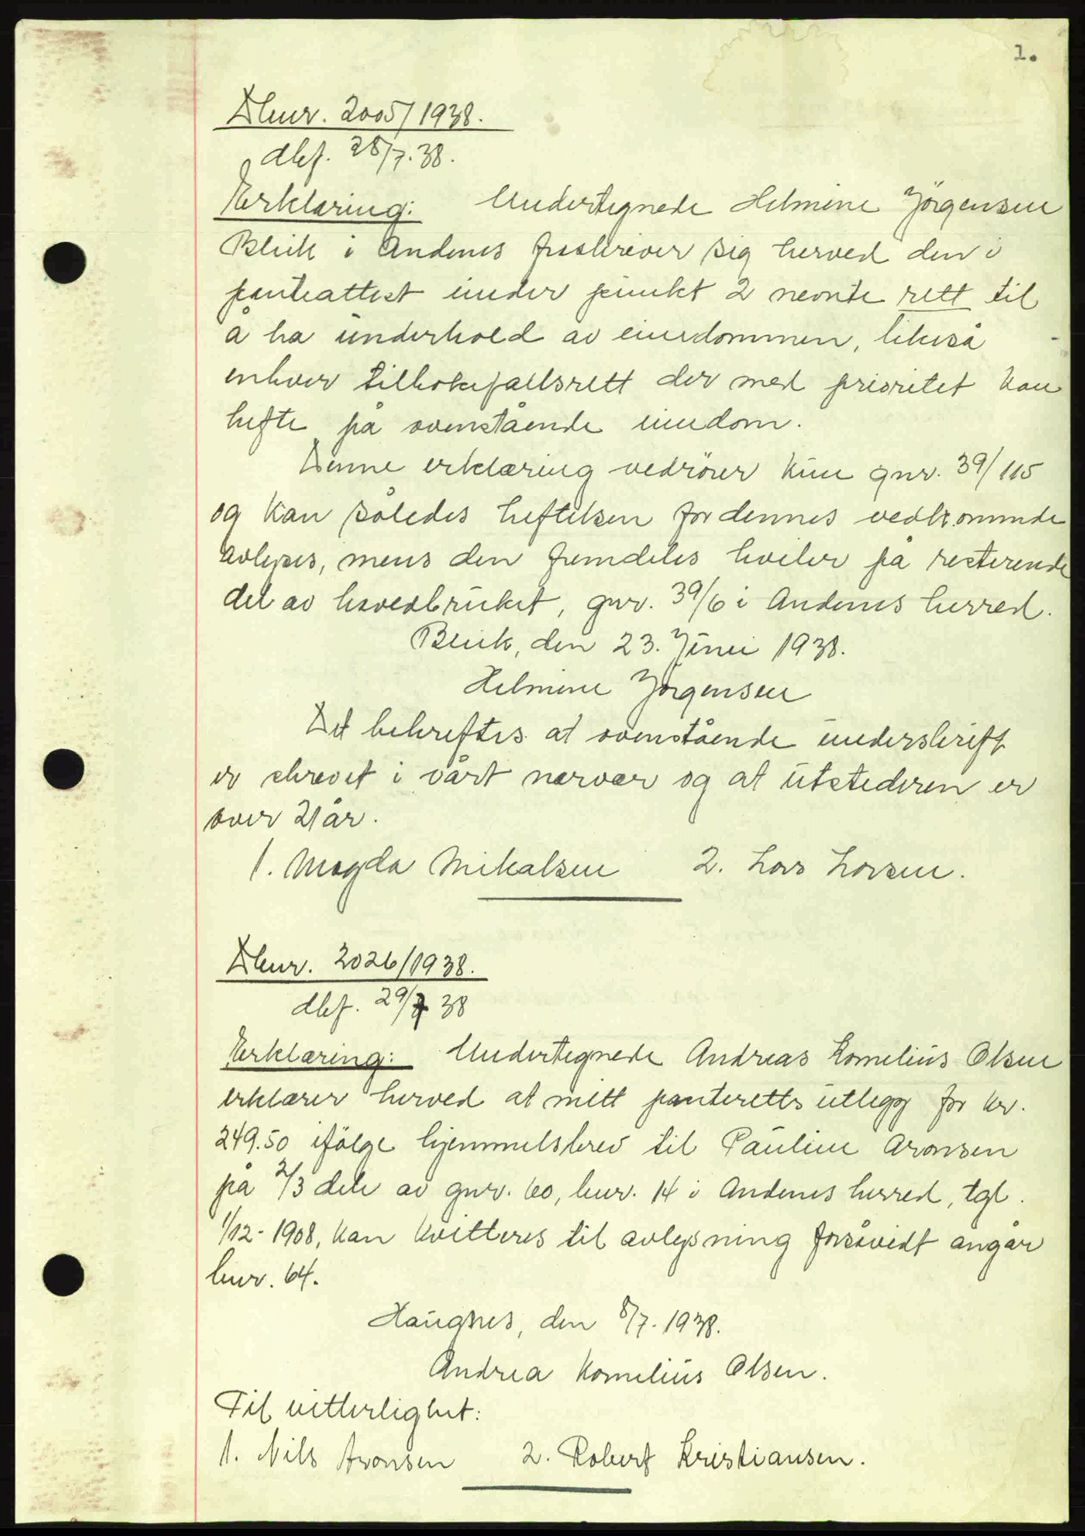 1.
Dbnr. 2005/1938.
dbf. 28/7.38.
Erklæring: Undertegnede Helmine Jörgensen
Bleik i Andenes fraskriver sig herved den i
panteattest under punkt 2 nevnte rett til
å ha underhold av eiendommen, likeså
enhver tilbakefallsrett der med prioritet kan
hefte på ovenstående eiendom.
Denne erklæring vedrörer kun gnr. 39/115
og kan således heftelsen for dennes vedkommende
avlyses, mens den fremdeles hviler på resterende
del av hovedbruket, gnr. 39/6 i Andenes herred.
Bleik, den 23. Juni 1938.
Helmine Jörgensen
Det bekreftes at ovenstående underskrift
er skrevet i vårt nærvær og at utstederen er
over 21 år.
1. Magda Mikalsen 2. Lars Larsen.
Dbnr. 2026/1938.
dbf. 29/7 38
Erklæring: Undertegnede Andreas Kornelius Olsen
erklærer herved at mitt panteretts utlegg for kr.
249.50 ifölge hjemmelsbrev til Pauline Aronsen
på 2/3 dele av gnr. 60, bnr. 14 i Andenes herred, tgl.
1/12-1908, kan kvitteres til avlysning forsåvidt angår
bnr. 64.
Haugnes, den 8/7. 1938.
Andrea Kornelius Olsen.
Til vitterlighet:
1. Nils Aronsen 2. Robert Kristiansen.